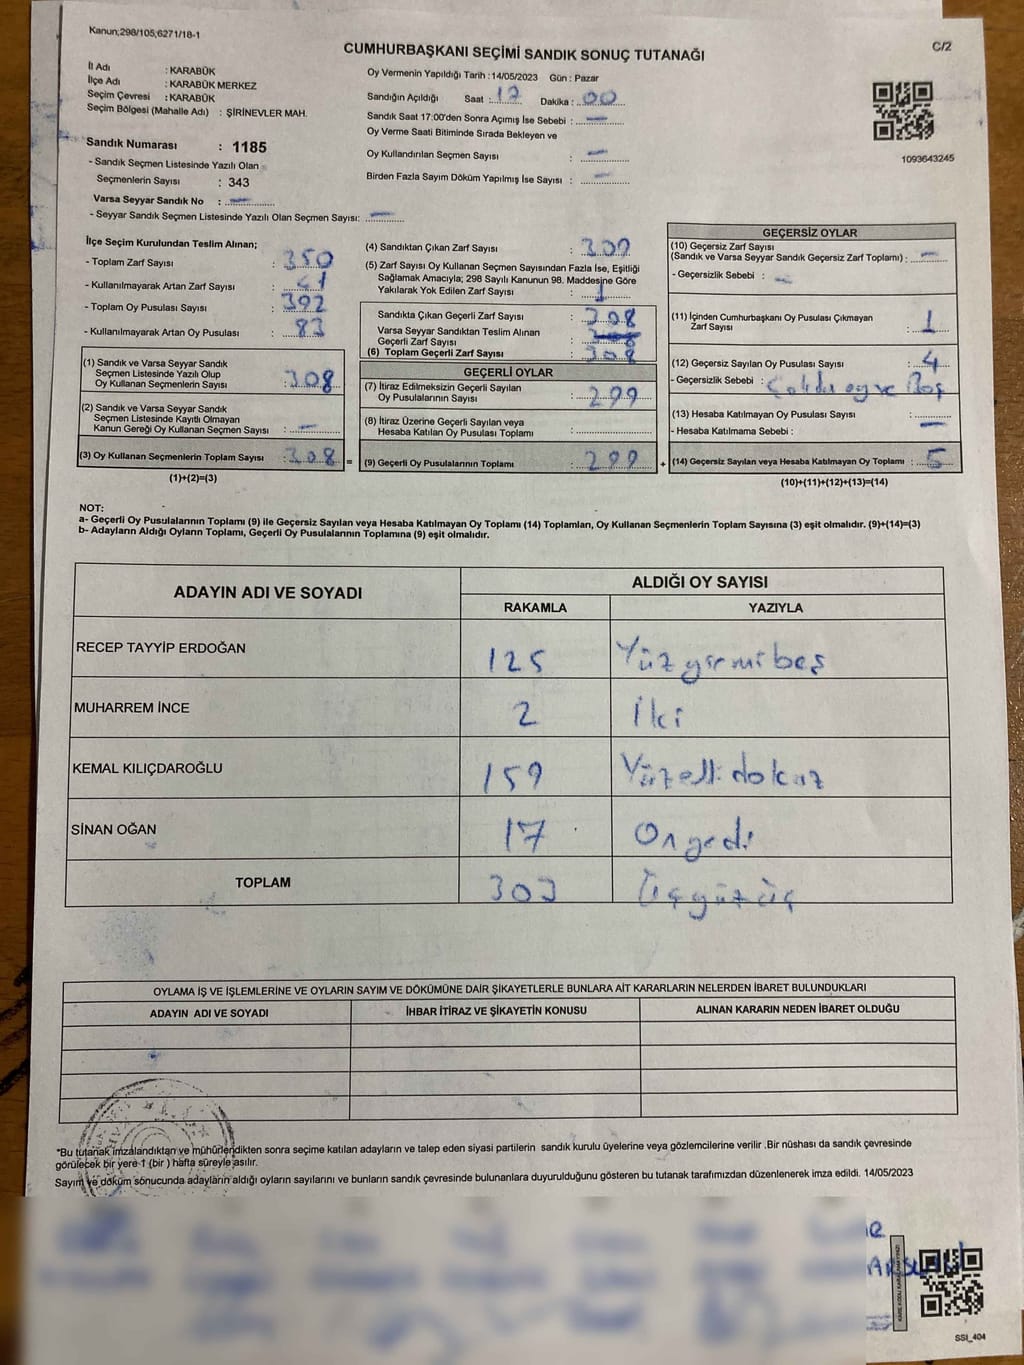 Kanun;298/105;6271/18-1
C/2
CUMHURBAŞKANI SEÇİMİ SANDIK SONUÇ TUTANAĞI
İl Adı : KARABÜK
İlçe Adı : KARABÜK MERKEZ
Seçim Çevresi : KARABÜK
Seçim Bölgesi (Mahalle Adı) : ŞİRİNEVLER MAH.
Sandık Numarası : 1185
- Sandık Seçmen Listesinde Yazılı Olan
Seçmenlerin Sayısı : 343
Varsa Seyyar Sandık No : —
- Seyyar Sandık Seçmen Listesinde Yazılı Olan Seçmen Sayısı: —
Oy Vermenin Yapıldığı Tarih : 14/05/2023 Gün : Pazar
Sandığın Açıldığı Saat : 17 Dakika : 00
Sandık Saat 17:00'den Sonra Açımış İse Sebebi : —
Oy Verme Saati Bitiminde Sırada Bekleyen ve
Oy Kullandırılan Seçmen Sayısı : —
Birden Fazla Sayım Döküm Yapılmış İse Sayısı : —
1093643245
İlçe Seçim Kurulundan Teslim Alınan;
- Toplam Zarf Sayısı : 350
- Kullanılmayarak Artan Zarf Sayısı :
- Toplam Oy Pusulası Sayısı : 392
- Kullanılmayarak Artan Oy Pusulası : 83
(1) Sandık ve Varsa Seyyar Sandık
Seçmen Listesinde Yazılı Olup
Oy Kullanan Seçmenlerin Sayısı : 308
(2) Sandık ve Varsa Seyyar Sandık
Seçmen Listesinde Kayıtlı Olmayan
Kanun Gereği Oy Kullanan Seçmen Sayısı : —
(3) Oy Kullanan Seçmenlerin Toplam Sayısı : 308 =
(1)+(2)=(3)
(4) Sandıktan Çıkan Zarf Sayısı : 309
(5) Zarf Sayısı Oy Kullanan Seçmen Sayısından Fazla İse, Eşitliği
Sağlamak Amacıyla; 298 Sayılı Kanunun 98. Maddesine Göre
Yakılarak Yok Edilen Zarf Sayısı : 1
Sandıkta Çıkan Geçerli Zarf Sayısı : 308
Varsa Seyyar Sandıktan Teslim Alınan
Geçerli Zarf Sayısı :
(6) Toplam Geçerli Zarf Sayısı : 308
GEÇERLİ OYLAR
(7) İtiraz Edilmeksizin Geçerli Sayılan
Oy Pusulalarının Sayısı : 299
(8) İtiraz Üzerine Geçerli Sayılan veya
Hesaba Katılan Oy Pusulası Toplamı :
(9) Geçerli Oy Pusulalarının Toplamı : 299 +
GEÇERSİZ OYLAR
(10) Geçersiz Zarf Sayısı
(Sandık ve Varsa Seyyar Sandık Geçersiz Zarf Toplamı) : —
- Geçersizlik Sebebi : —
(11) İçinden Cumhurbaşkanı Oy Pusulası Çıkmayan
Zarf Sayısı : 1
(12) Geçersiz Sayılan Oy Pusulası Sayısı : 4
- Geçersizlik Sebebi : oy ve Boş
(13) Hesaba Katılmayan Oy Pusulası Sayısı :
- Hesaba Katılmama Sebebi : —
(14) Geçersiz Sayılan veya Hesaba Katılmayan Oy Toplamı : 5
(10)+(11)+(12)+(13)=(14)
NOT:
a- Geçerli Oy Pusulalarının Toplamı (9) ile Geçersiz Sayılan veya Hesaba Katılmayan Oy Toplamı (14) Toplamları, Oy Kullanan Seçmenlerin Toplam Sayısına (3) eşit olmalıdır. (9)+(14)=(3)
b- Adayların Aldığı Oyların Toplamı, Geçerli Oy Pusulalarının Toplamına (9) eşit olmalıdır.
ADAYIN ADI VE SOYADI ALDIĞI OY SAYISI
RAKAMLA YAZIYLA
RECEP TAYYİP ERDOĞAN 125 Yüz yirmi beş
MUHARREM İNCE 2 İki
KEMAL KILIÇDAROĞLU 159 Yüzelli dokuz
SİNAN OĞAN 17 On yedi
TOPLAM 303 Üçyüz üç
OYLAMA İŞ VE İŞLEMLERİNE VE OYLARIN SAYIM VE DÖKÜMÜNE DAİR ŞİKAYETLERLE BUNLARA AİT KARARLARIN NELERDEN İBARET BULUNDUKLARI
ADAYIN ADI VE SOYADI İHBAR İTİRAZ VE ŞİKAYETİN KONUSU ALINAN KARARIN NEDEN İBARET OLDUĞU
*Bu tutanak imzalandıktan ve mühürlendikten sonra seçime katılan adayların ve talep eden siyasi partilerin sandık kurulu üyelerine veya gözlemcilerine verilir .Bir nüshası da sandık çevresinde
görülecek bir yere 1 (bir ) hafta süreyle asılır.
Sayım ve döküm sonucunda adayların aldığı oyların sayılarını ve bunların sandık çevresinde bulunanlara duyurulduğunu gösteren bu tutanak tarafımızdan düzenlenerek imza edildi. 14/05/2023
SSI_404